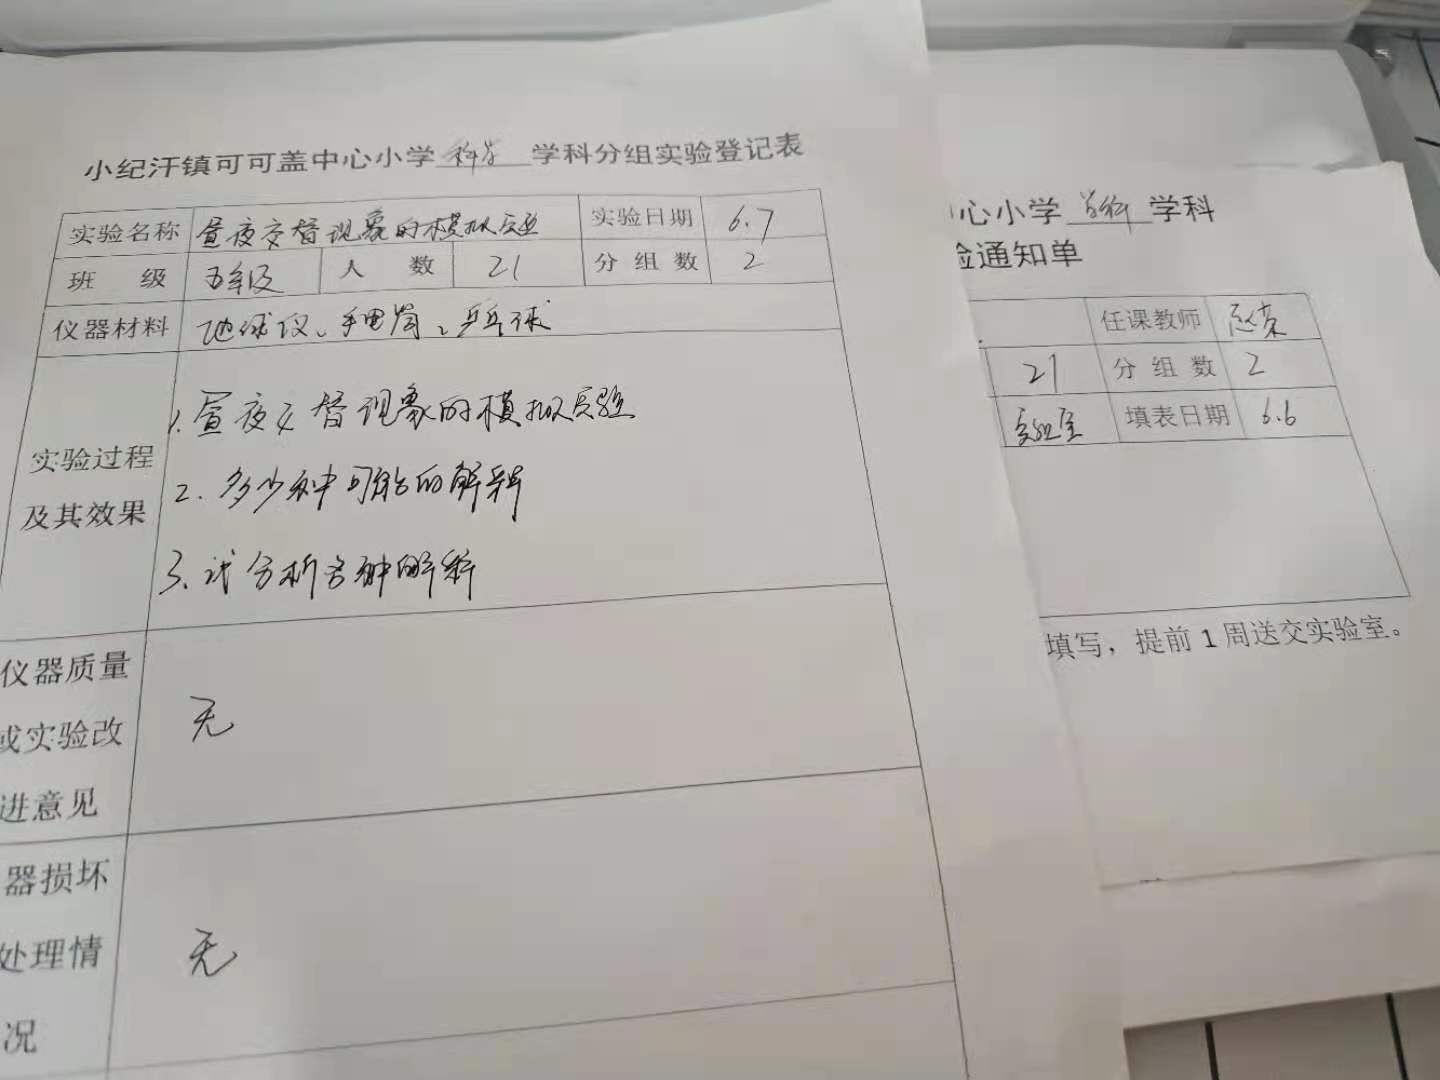 小纪汗镇可可盖中心小学 科学 学科分组实验登记表
实验名称 昼夜交替现象的模拟实验 实验日期 6.7
班 级 五年级 人 数 21 分组数 2
仪器材料 地球仪、手电筒、乒乓球
实验过程
及其效果
1.昼夜交替现象的模拟实验
2.多少种可能的解释
3.试分析各种解释
仪器质量
或实验改
进意见
无
器损坏
处理情
况
无
心小学 学科
验通知单
任课教师
21 分组数 2
实验室 填表日期 6.6
填写，提前1周送交实验室。